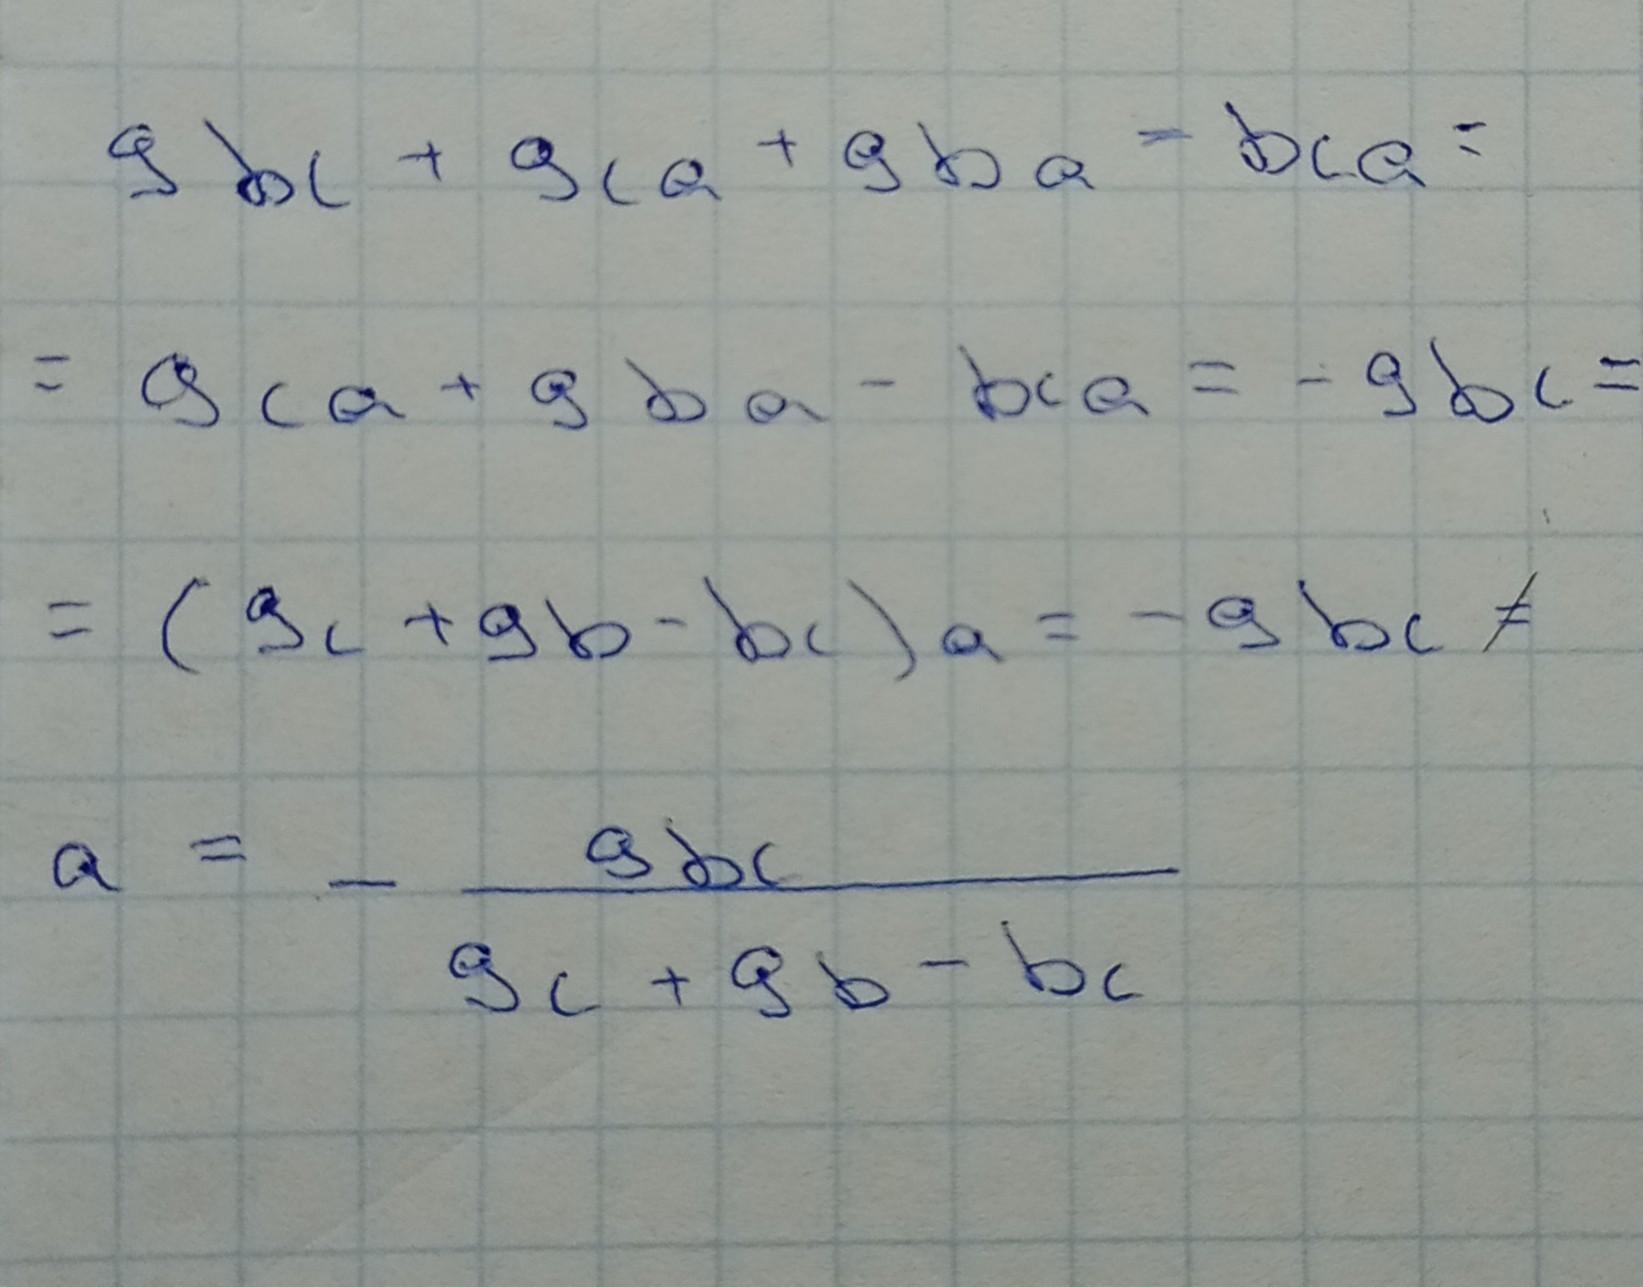 gbc + gca + gba = bca =
= gca + gba - bca = - gbc =
= (gc + gb - bc) a = - gbc ≠
a = - gbc / gc + gb - bc